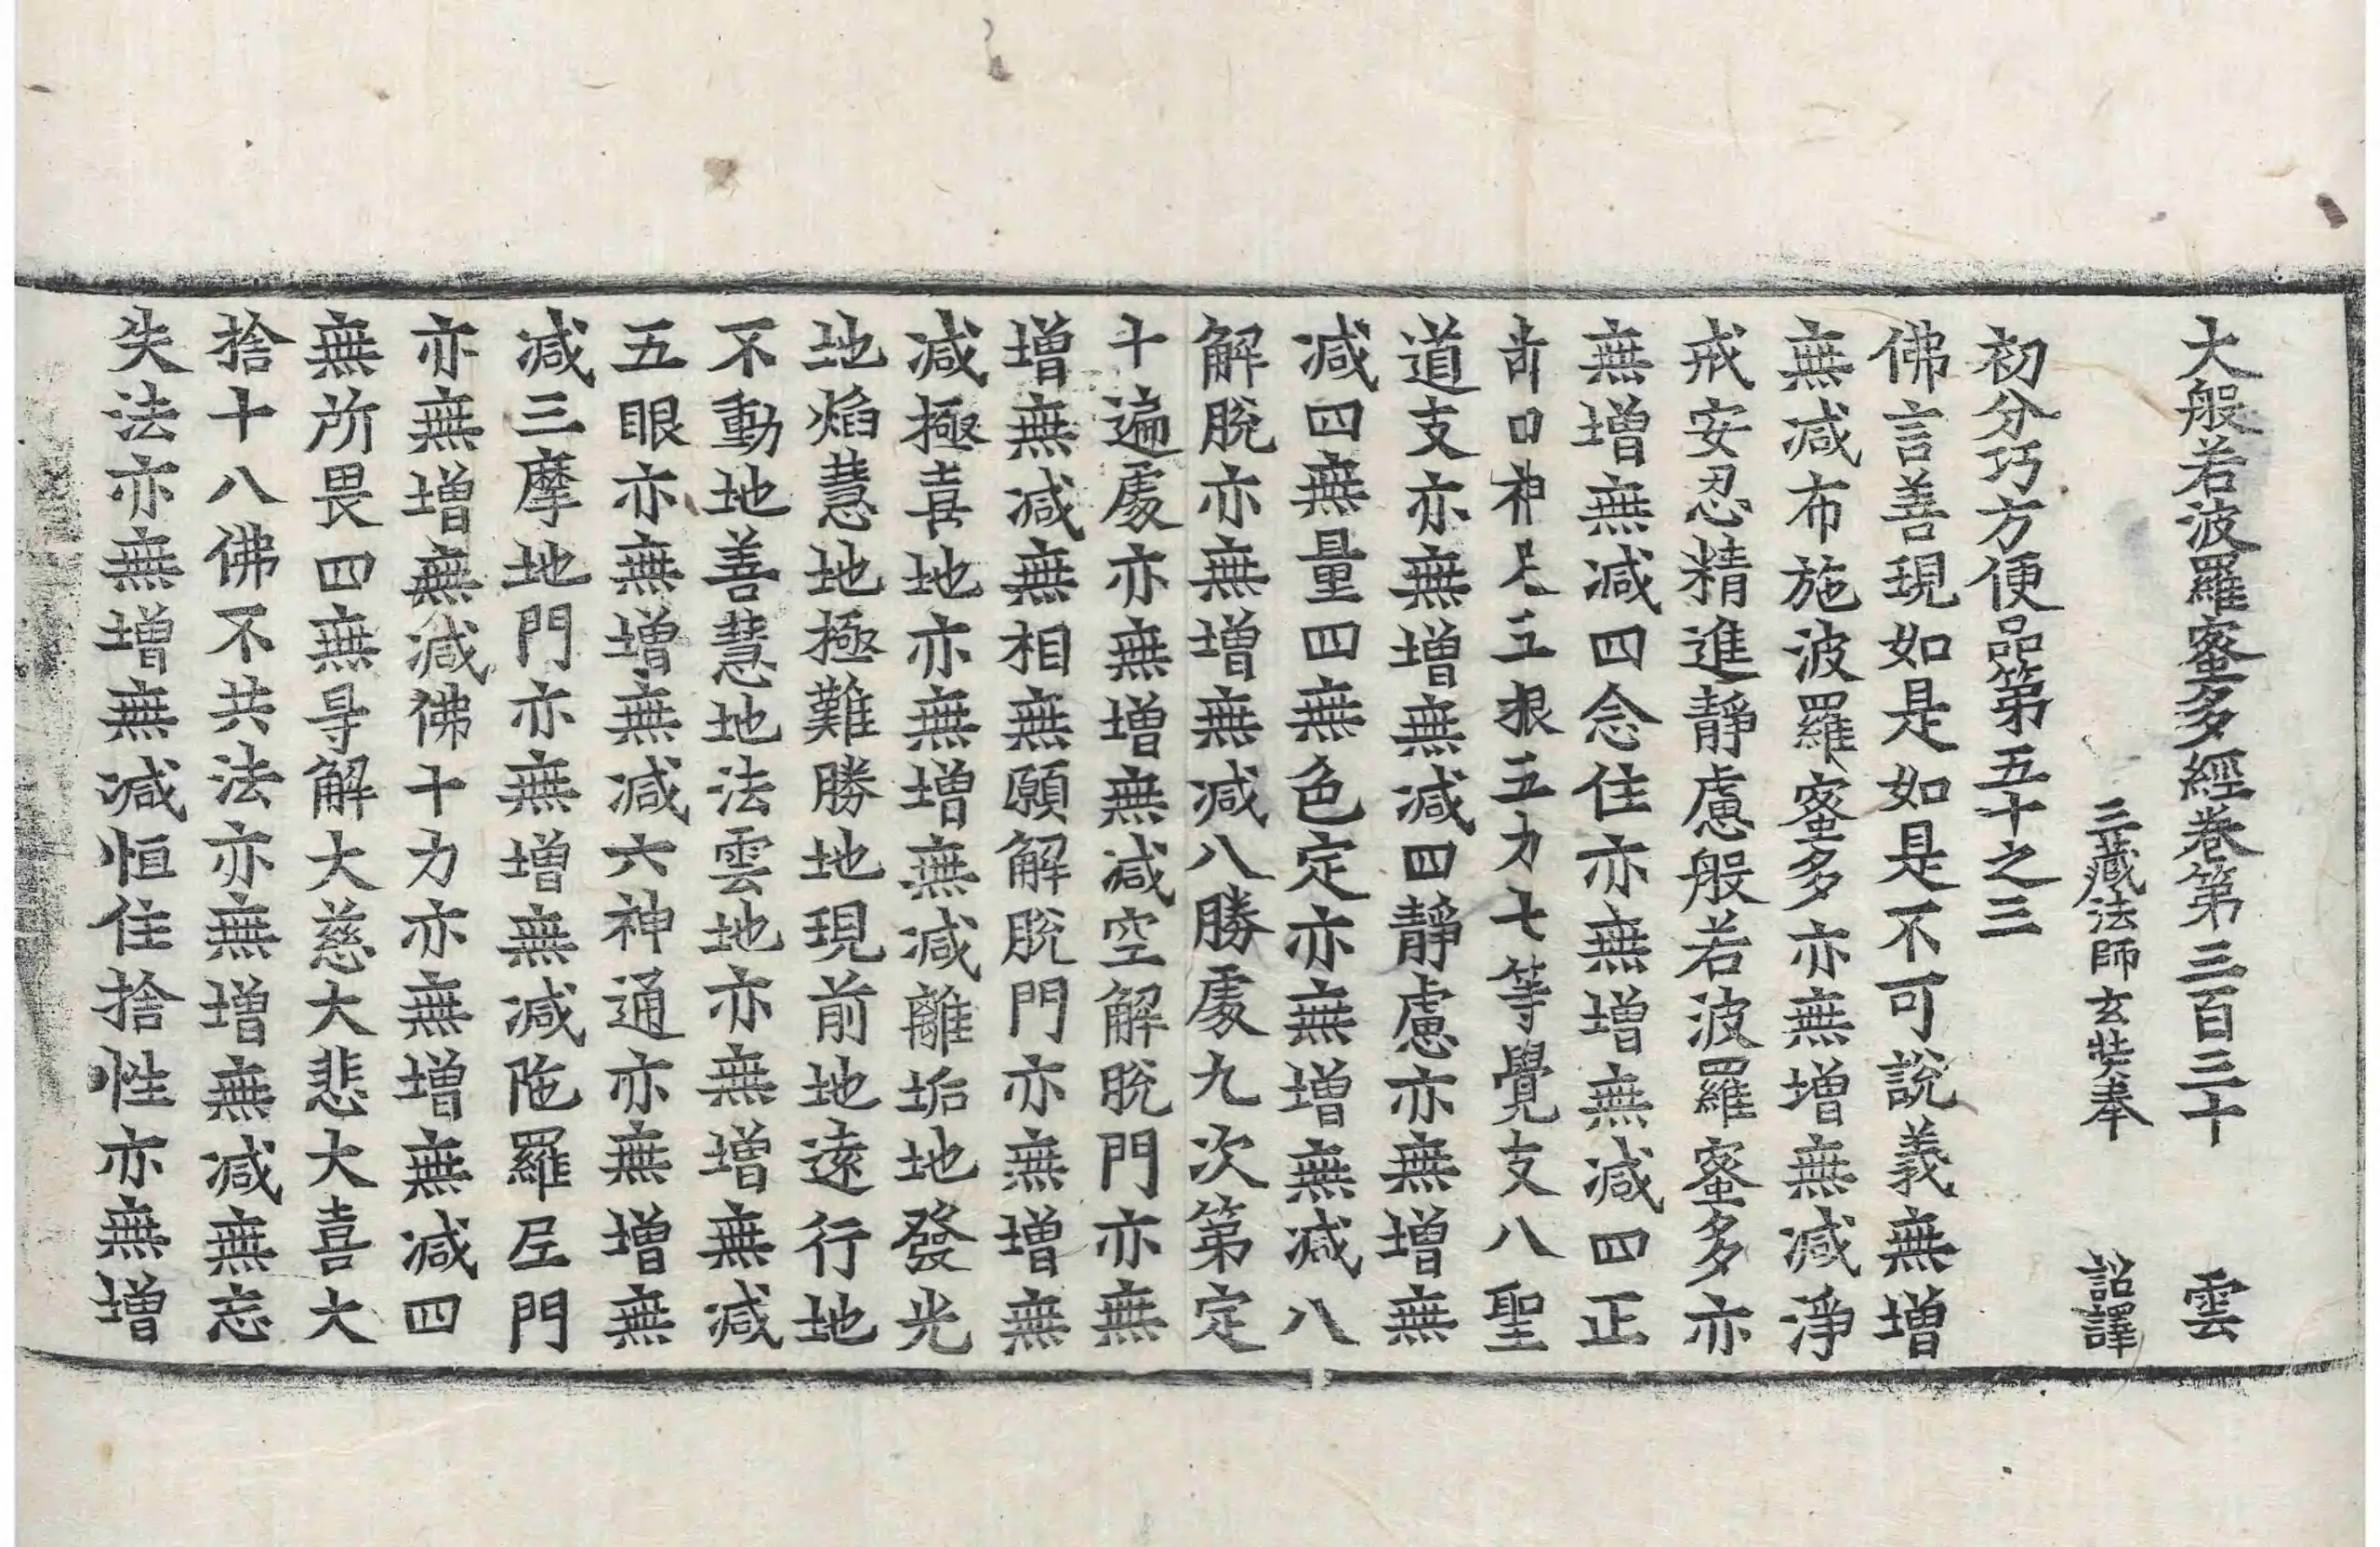 大般若波羅蜜多經卷第三百三十 雲
三藏法師玄奘奉 詔譯
初分巧方便品第五十之三
佛言善現如是如是不可說義無增
無减布施波羅蜜多亦無增無减淨
戒安忍精進靜慮般若波羅蜜多亦
無增無减四念住亦無增無减四正
神足五根五力七等覺支八聖
道支亦無增無减四靜慮亦無增無
减四無量四無色定亦無增無减八
解脫亦無增無减八勝處九次第定
十遍處亦無增無减空解脫門亦無
增無减無相無願解脫門亦無增無
减極喜地亦無增無减離垢地發光
地焰慧地極難勝地現前地遠行地
不動地善慧地法雲地亦無增無减
五眼亦無增無减六神通亦無增無
减三摩地門亦無增無减陁羅尼門
亦無增無减佛十力亦無增無减四
無所畏四無㝵解大慈大悲大喜大
捨十八佛不共法亦無增無减無忘
失法亦無增無减恒住捨性亦無增